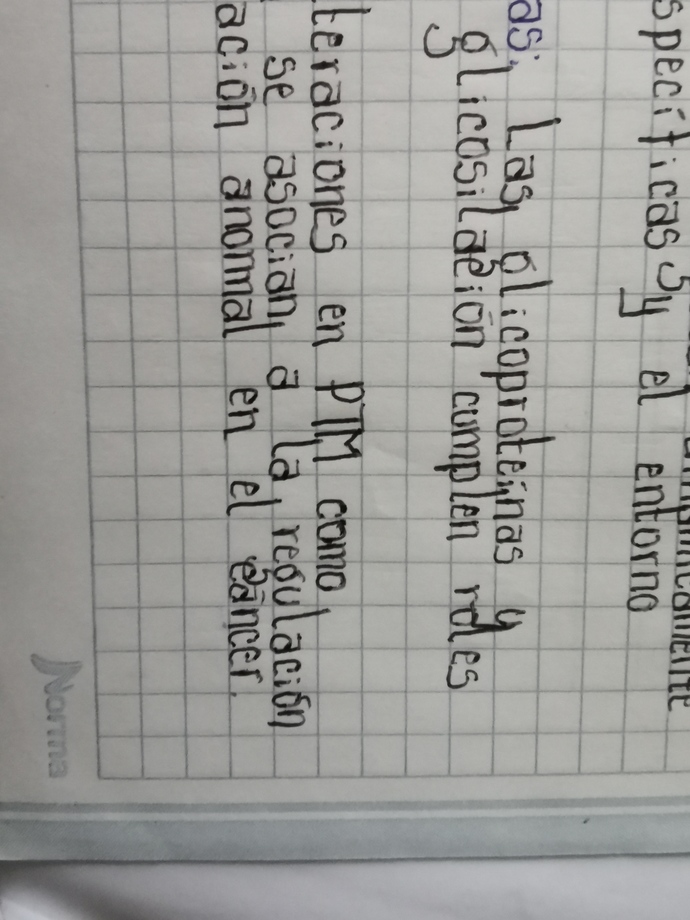 specíficas y el entorno
as: Las glicoproteínas y
glicosilación cumplen roles
teraciones en PTM como
se asocian a la regulación
ación anormal en el cáncer.
Norma